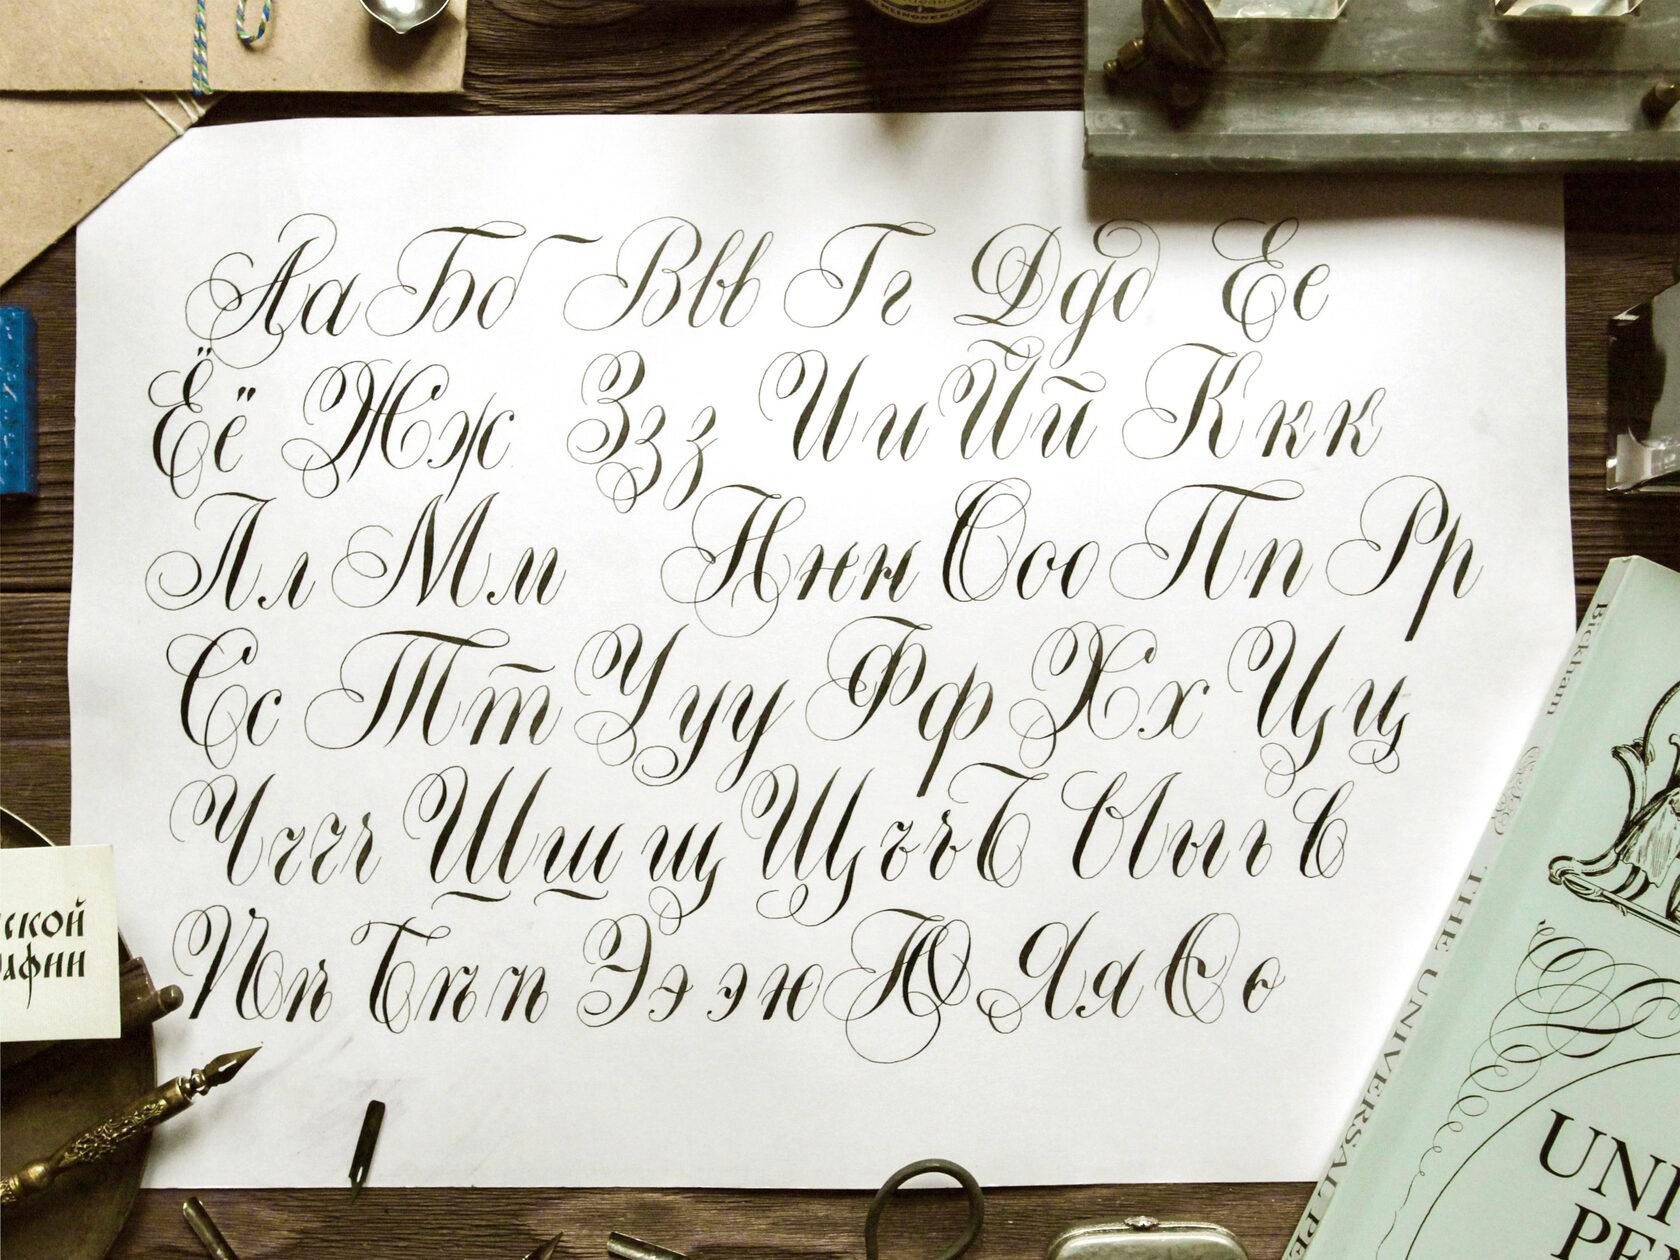 Аа Бб Ввв Гг Ддд Ее
Ёё Жж Ззз Ии Йй Ккк
Лл Мм Ннн Ооо Пп Рр
Сс Тт Ууу Фф Хх Цц
Чччч Шш щЩ ъъЪ Ыыь Ь
Ѣѣ Ээ эю Ю Яя Ѳѳ
ской
афии
Bickham
THE UNIVERSAL PE
UNI
PE